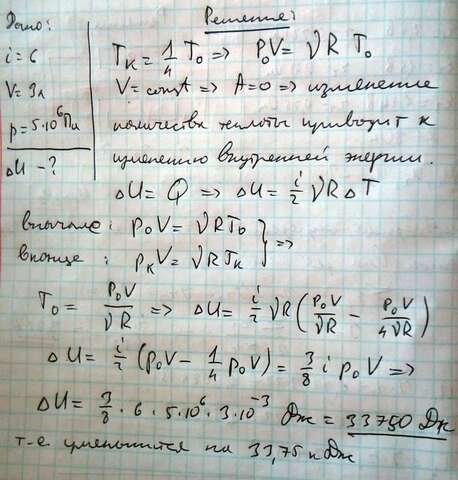 Дано:
i = 6
V = 3л
p = 5·10⁶ Па
ΔU - ?
Решение:
Tк = 1/4 T₀ => P₀V = νR T₀
V = const => A = 0 => изменение
количества теплоты приводит к
изменению внутренней энергии.
ΔU = Q => ΔU = i/2 νRΔT
вначале: p₀V = νRT₀ } =>
вконце: pкV = νRTк
T₀ = p₀V/νR => ΔU = i/2 νR (p₀V/νR - p₀V/4νR)
ΔU = i/2 (p₀V - 1/4 p₀V) = 3/8 i p₀V =>
ΔU = 3/8 · 6 · 5·10⁶ · 3·10⁻³ Дж = 33750 Дж
т-е уменьшится на 33,75 кДж